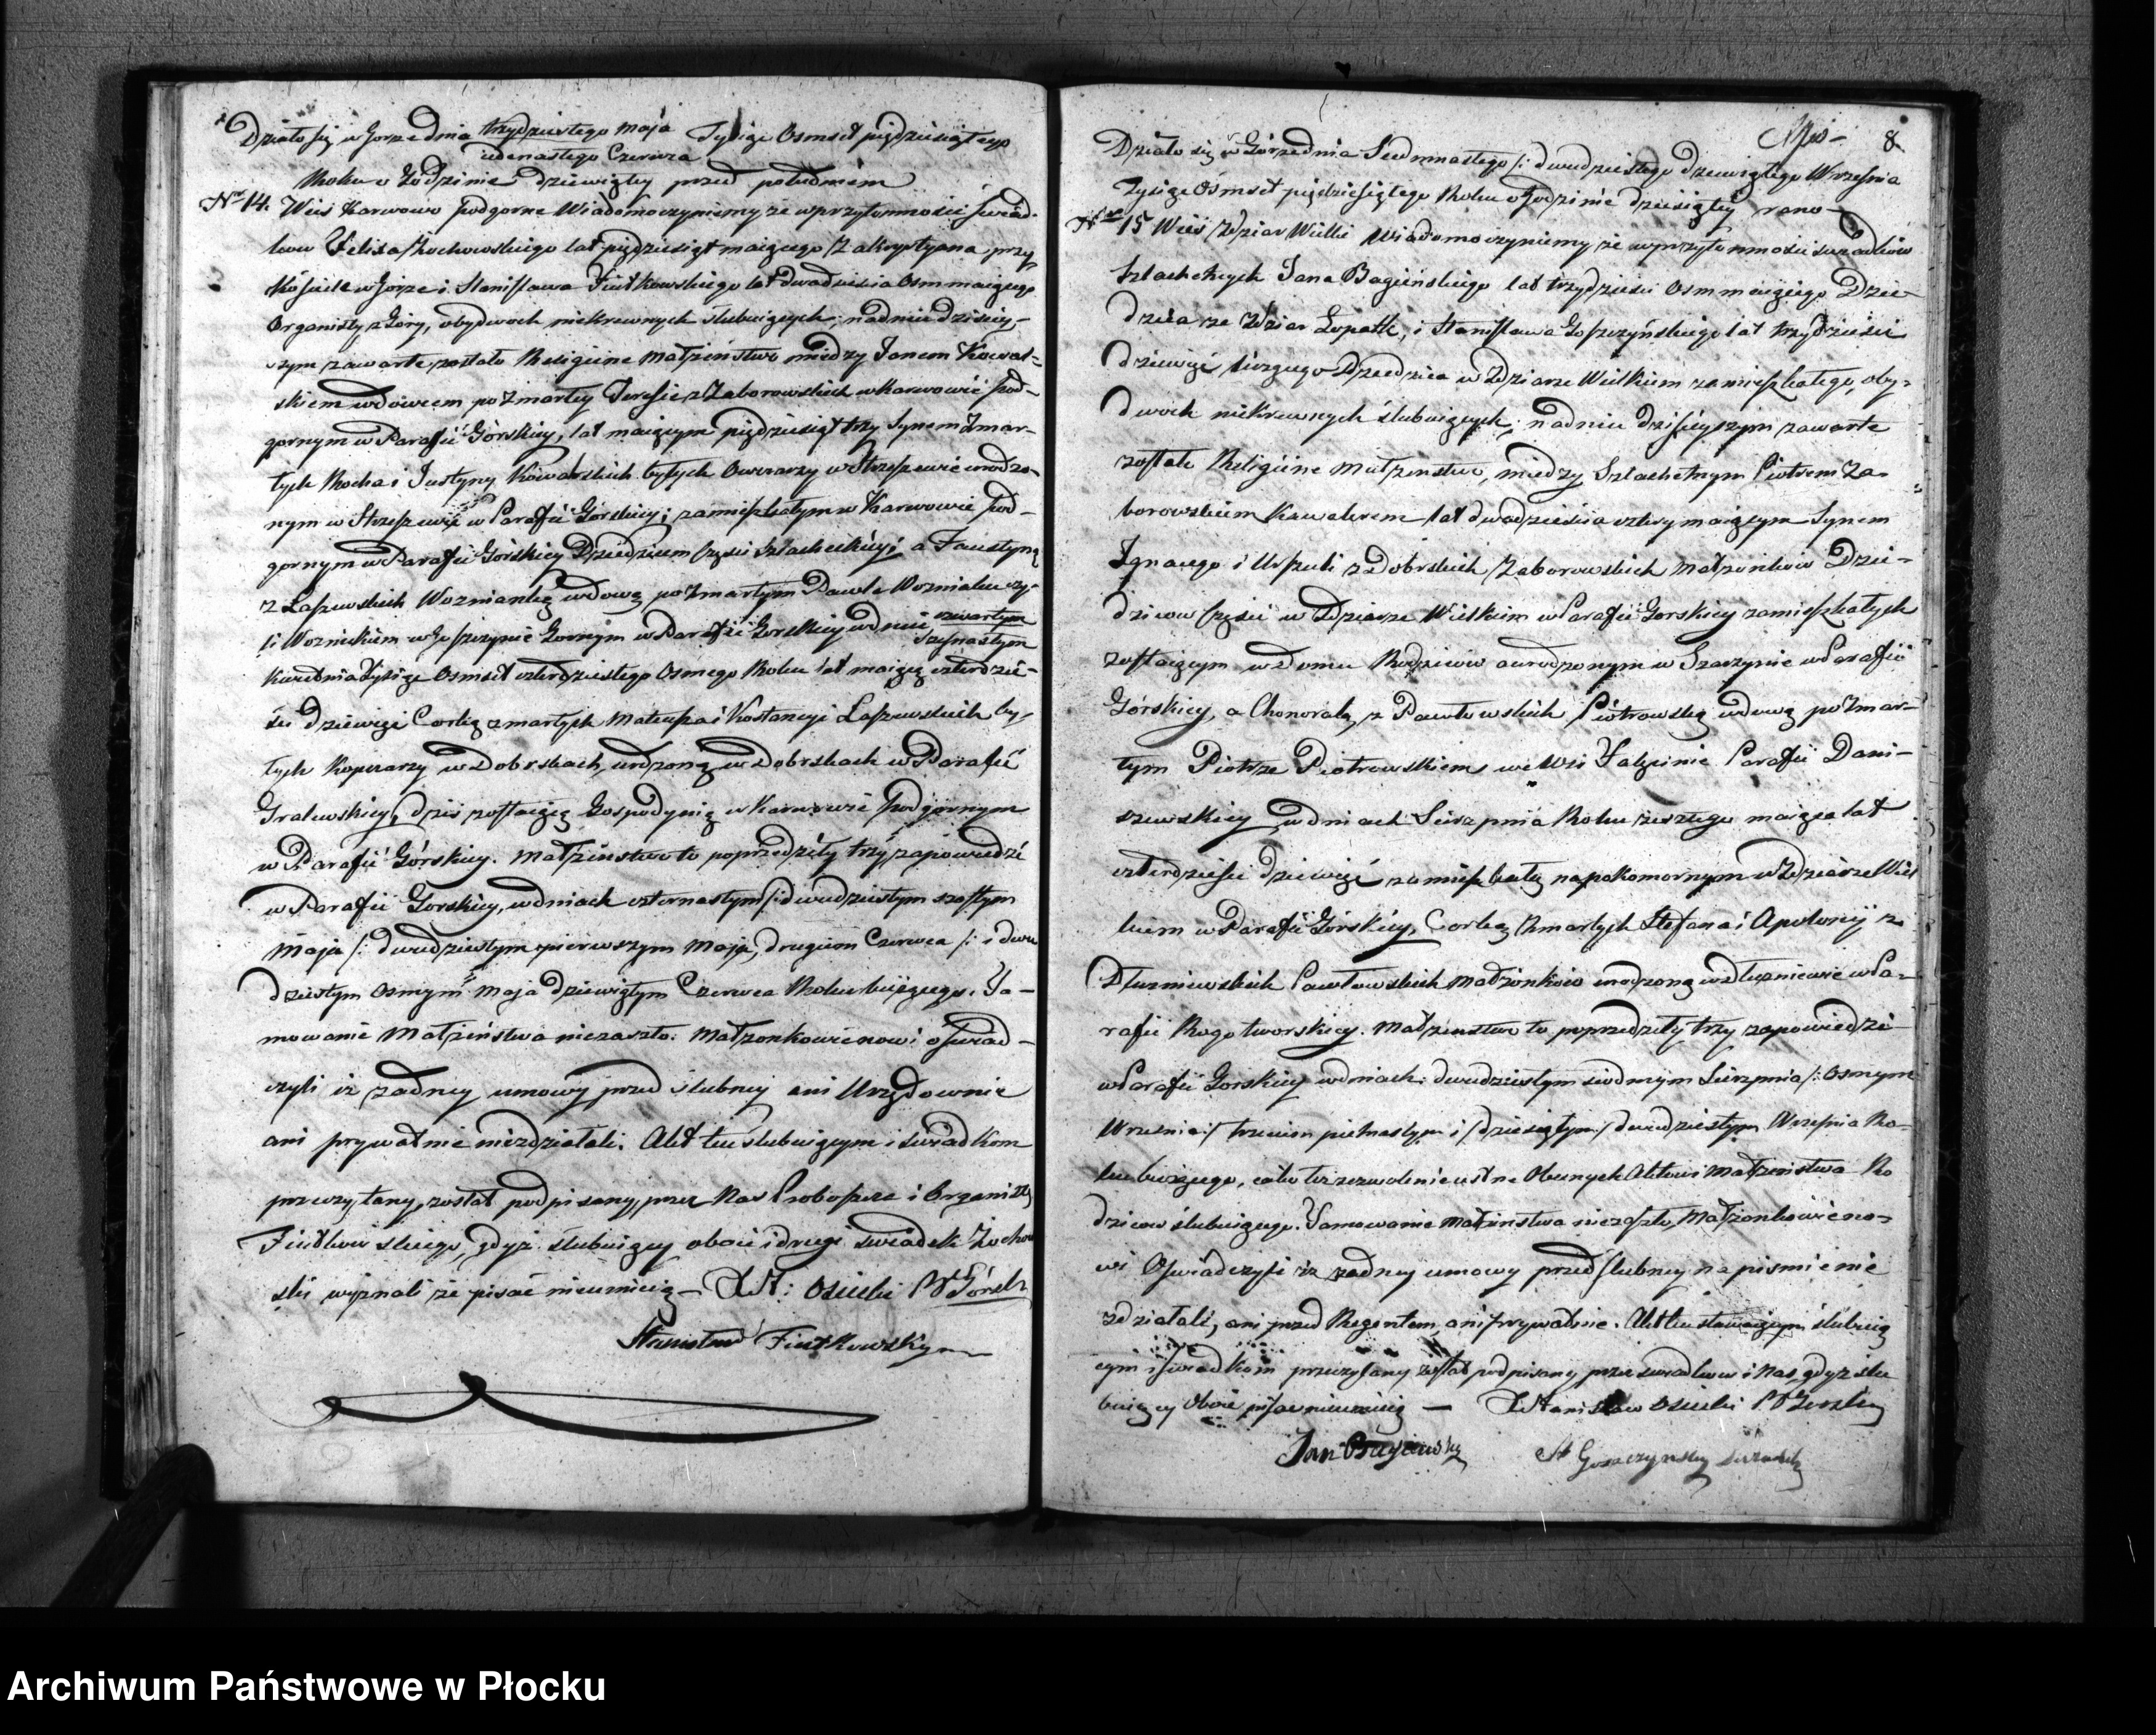 Działo się w Gorze dnia trzydziestego Maja Tysiąc Osmset pięćdziesiątego
jedenastego Czerwca
Roku o Godzinie dziewiątey przed południem
Nro 14. Wieś Karwowo podgorne Wiadomo czyniemy że w przytomności świad-
kow Felixa Żochowskiego lat pięćdziesiąt maiącego Zakrystyana przy
Kościele w Gorze i Stanisława Fiutkowskiego lat dwadzieścia Osm maiącego
Organisty z Góry, obydwoch niekrewnych slubuiących; na dniu dzisiey-
szym zawarte zostało Religiine Małżeństwo między Janem Kowal-
skiem wdowcem po zmarłey Teresie z Zaborowskich w Karwowie pod-
gornym w Parafii Górskiey, lat maiącym pięćdziesiąt trzy Synem Zmar-
łych Rocha i Justyny Kowalskich byłych Owczarzy w Strzeszewie urodzo-
nym w Strzeszewie w Parafii Górskiey; zamieszkałym w Karwowie pod-
gornym w Parafii Górskiey Dziedzicem Części Szlacheckiey; a Faustyną
z Laszewskich Wozniaką wdową po zmarłym Pawle Wozniaku czy-
li Woznickim w Goszczynie Gornym w Parafii Gorskiey w dniu czwartym
szesnastym
Kwietnia Tysiąc Osmset czterdziestego Osmego Roku lat maiącą czterdzie-
ści dziewięć Corką zmarłych Mateusza i Kostancyi Laszewskich by-
łych Koperarzy w Dobrskach, urodzoną w Dobrskach w Parafii
Gralewskiey, dziś zostaiącą Gospodynią w Karwowie podgornym
w Parafii Górskiey. Małżeństwo to poprzedziły trzy zapowiedzi
w Parafii Gorskiey, w dniach czternastym /: dwudziestym szostym
Maja /: dwudziestym pierwszym Maja, drugim Czerwca /: i dwu
dziestym Osmym Maja dziewiątym Czerwca Roku bieżącego. Ta-
mowanie Małżeństwa niezaszło. Małżonkowie nowi oświad-
czyli iż żadney umowy przed ślubney ani Urzędownie
ani prywatnie niezdziałali. Akt ten slubuiącym i świadkom
przeczytany, został podpisany, przez Nas Proboszcza i Organistę
Fiutkowskiego, gdyż ślubuiący oboie i drugi świadek Żochow
ski wyznali że pisać nieumieią — X St: Osiecki P Górsk
Stanisław Fiutkowski
8
Działo się w Górze dnia Siedmnastego /: dwudziestego dziewiątego Września
Tysiąc Osmset pięćdziesiątego Roku o Godzinie dziesiątey rano
Nro 15 Wieś Zdziar Wielki Wiadomo czyniemy że w przytomności świadków
Szlachetnych Jana Bagieńskiego lat trzydzieści Osm maiącego Dzie-
dzica ze Zdziar Łopatk, i Stanisława Goszczyńskiego lat trzydzieści
dziewięć liczącego Dziedzica w Zdziarze Wielkiem zamieszkałego, oby-
dwoch niekrewnych ślubuiących; na dniu dzisieyszym zawarte
zostało Religiine Małżenstwo, między Szlachetnym Piotrem Za-
borowskiem Kawalerem lat dwadzieścia cztery maiącym Synem
Ignacego i Urszuli z Dobrskich Zaborowskich Małżonków Dzie-
dziców części w Zdziarze Wielkim w Parafii Gorskiey zamieszkałych
zostaiącym w domu Rodziców a urodzonym w Szaszynie w Parafii
Górskiey, a Chonoratą, z Pawłowskich Piotrowską wdową po Zmar-
łym Piotrze Piotrowskiem we Wsi Falęcinie Parafii Dani-
szewskiey w dniach Sierpnia Roku zeszłego maiąca lat
czterdzieści dziewięć zamieszkałą na pokomornym w Zdziarze Wiel
kiem w Parafii Górskiey, Corką Zmarłych Stefana i Apolonij z
Dłużniewskich Pawłowskich Małżonków urodzoną w Dłużniewie w Pa-
rafii Rogotworskiey. Małżenstwo to poprzedziły trzy zapowiedzi
w Parafii Gorskiey w dniach: dwudziestym siodmym Sierpnia /: Osmym
Września:/ trzecim piętnastym i /dziesiątym/ dwudziestym Września Ro-
ku bieżącego, iako też zezwolenie ustne Obecnych Aktowi Małżeństwa Ro
dziców ślubuiącego. Tamowanie Małżeństwa niezaszło, Małżonkowie no-
wi Oświadczyli iż żadney umowy przedślubney na pismienie
zdziałali, ani przed Regentem, ani prywatnie. Akt ten stawaiącym ślubuią
cym i świadkom przeczytany został podpisany przez świadkow i Nas, gdyż slu
buiący Oboie pisać nieumieią — X Stanisław Osiecki P Gorskiey
Jan Bagieński St Goszczynski świadek
Archiwum Państwowe w Płocku